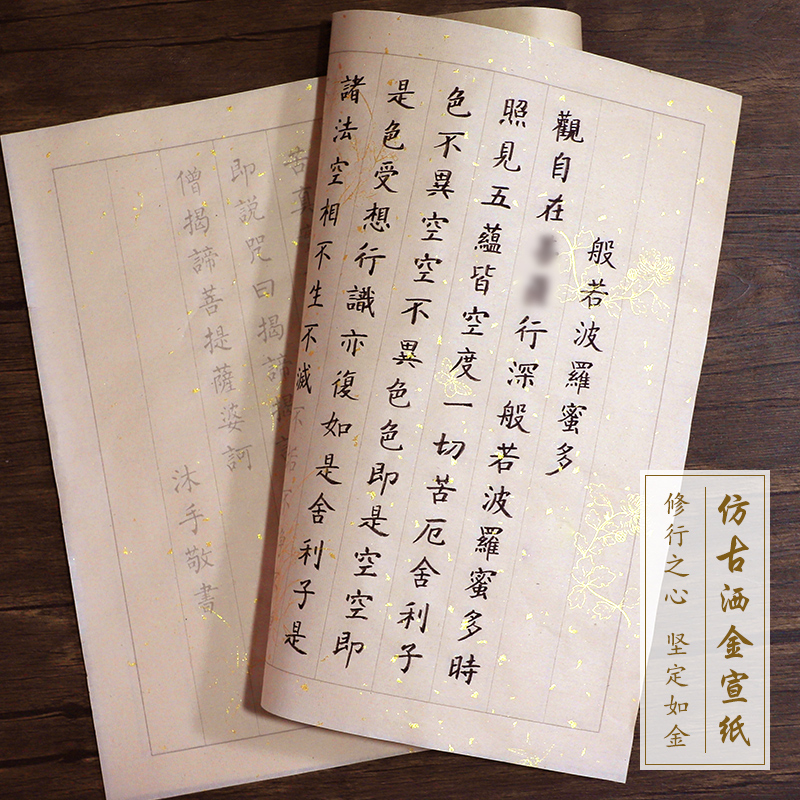 般若波羅蜜多
觀自在 行深般若波羅蜜多時
照見五蘊皆空度一切苦厄舍利子
色不異空空不異色色即是空空即
是色受想行識亦復如是舍利子是
諸法空相不生不滅
苦真
即說咒曰揭諦揭
僧揭諦菩提薩婆訶
沐手敬書
仿古洒金宣纸
修行之心 坚定如金